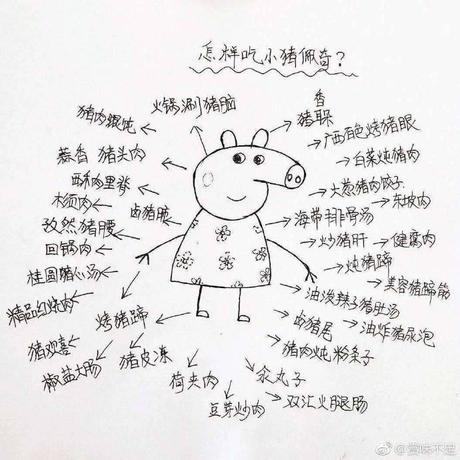 怎样吃小猪佩奇？
火锅涮猪脑
香
猪耳
猪肉馄饨
广西百色烤猪眼
蒜香 猪头肉
白菜炖猪肉
酥肉里脊
火葱猪肉饺子
木须肉
卤猪脆
东坡肉
孜然猪腰
海带排骨汤
回锅肉
炒猪肝
健腐肉
桂圆猪心汤
炖猪蹄
美容猪蹄筋
精品红烧肉
油泼辣子猪肚汤
烤猪蹄
卤猪尾
油炸猪尿泡
猪欢喜
猪皮冻
猪肉炖粉条子
椒盐大肠
荷夹肉
汆丸子
豆芽炒肉
双汇火腿肠